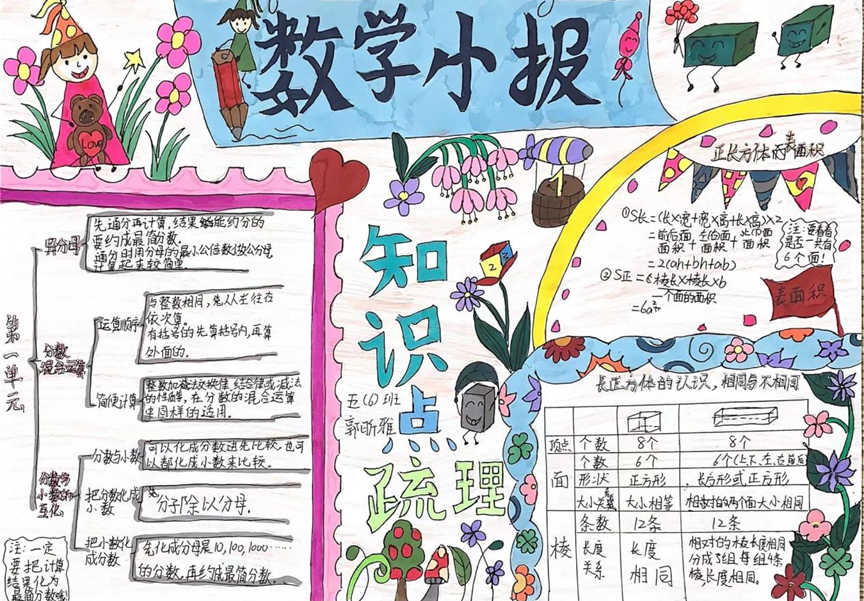 数学小报
第一单元
异分母
先通分再计算,结果能约分的
要约成最简分数。
通分时用分母的最小公倍数做公分母,
计算起来较简单。
分数
混合运算
运算顺序
与整数相同,先从左往右
依次算。
有括号的先算括号内,再算
外面的。
简便计算
整数加法交换律、结合律或减法
的性质,在分数的混合运算
中同样的适用。
分数与
小数的
互化。
分数与小数
可以化成分数进先比较,也可
以都化成小数来比较。
把分数化成
小数
分子除以分母。
把小数化
成分数
先化成分母是10,100,1000……
的分数,再约成最简分数。
注:一定
要把计算
结果化为
最简分数哦
知识点疏理
五(6)班
郭昕雅
Love
1
2
正长方体的表面积
①S长=(长×宽+宽×高+长×高)×2
=前后面 左右面 上下面
面积+面积+面积
=2(ah+bh+ab)
②S正=6棱长×棱长×6
一个面的面积
=6a²
注:要看看
是否一共有
6个面!
表面积
长正方体的认识,相同与不相同
顶点 个数 8个 8个
面 个数 6个 6个(上下、左右、前后)
形状 正方形 长方形或正方形
大小关系 大小相等 相对的两个面大小相同
棱 条数 12条 12条
长度
关系
长度
相同
相对的棱长度相同
分成3组每组4条
棱,长度相同。